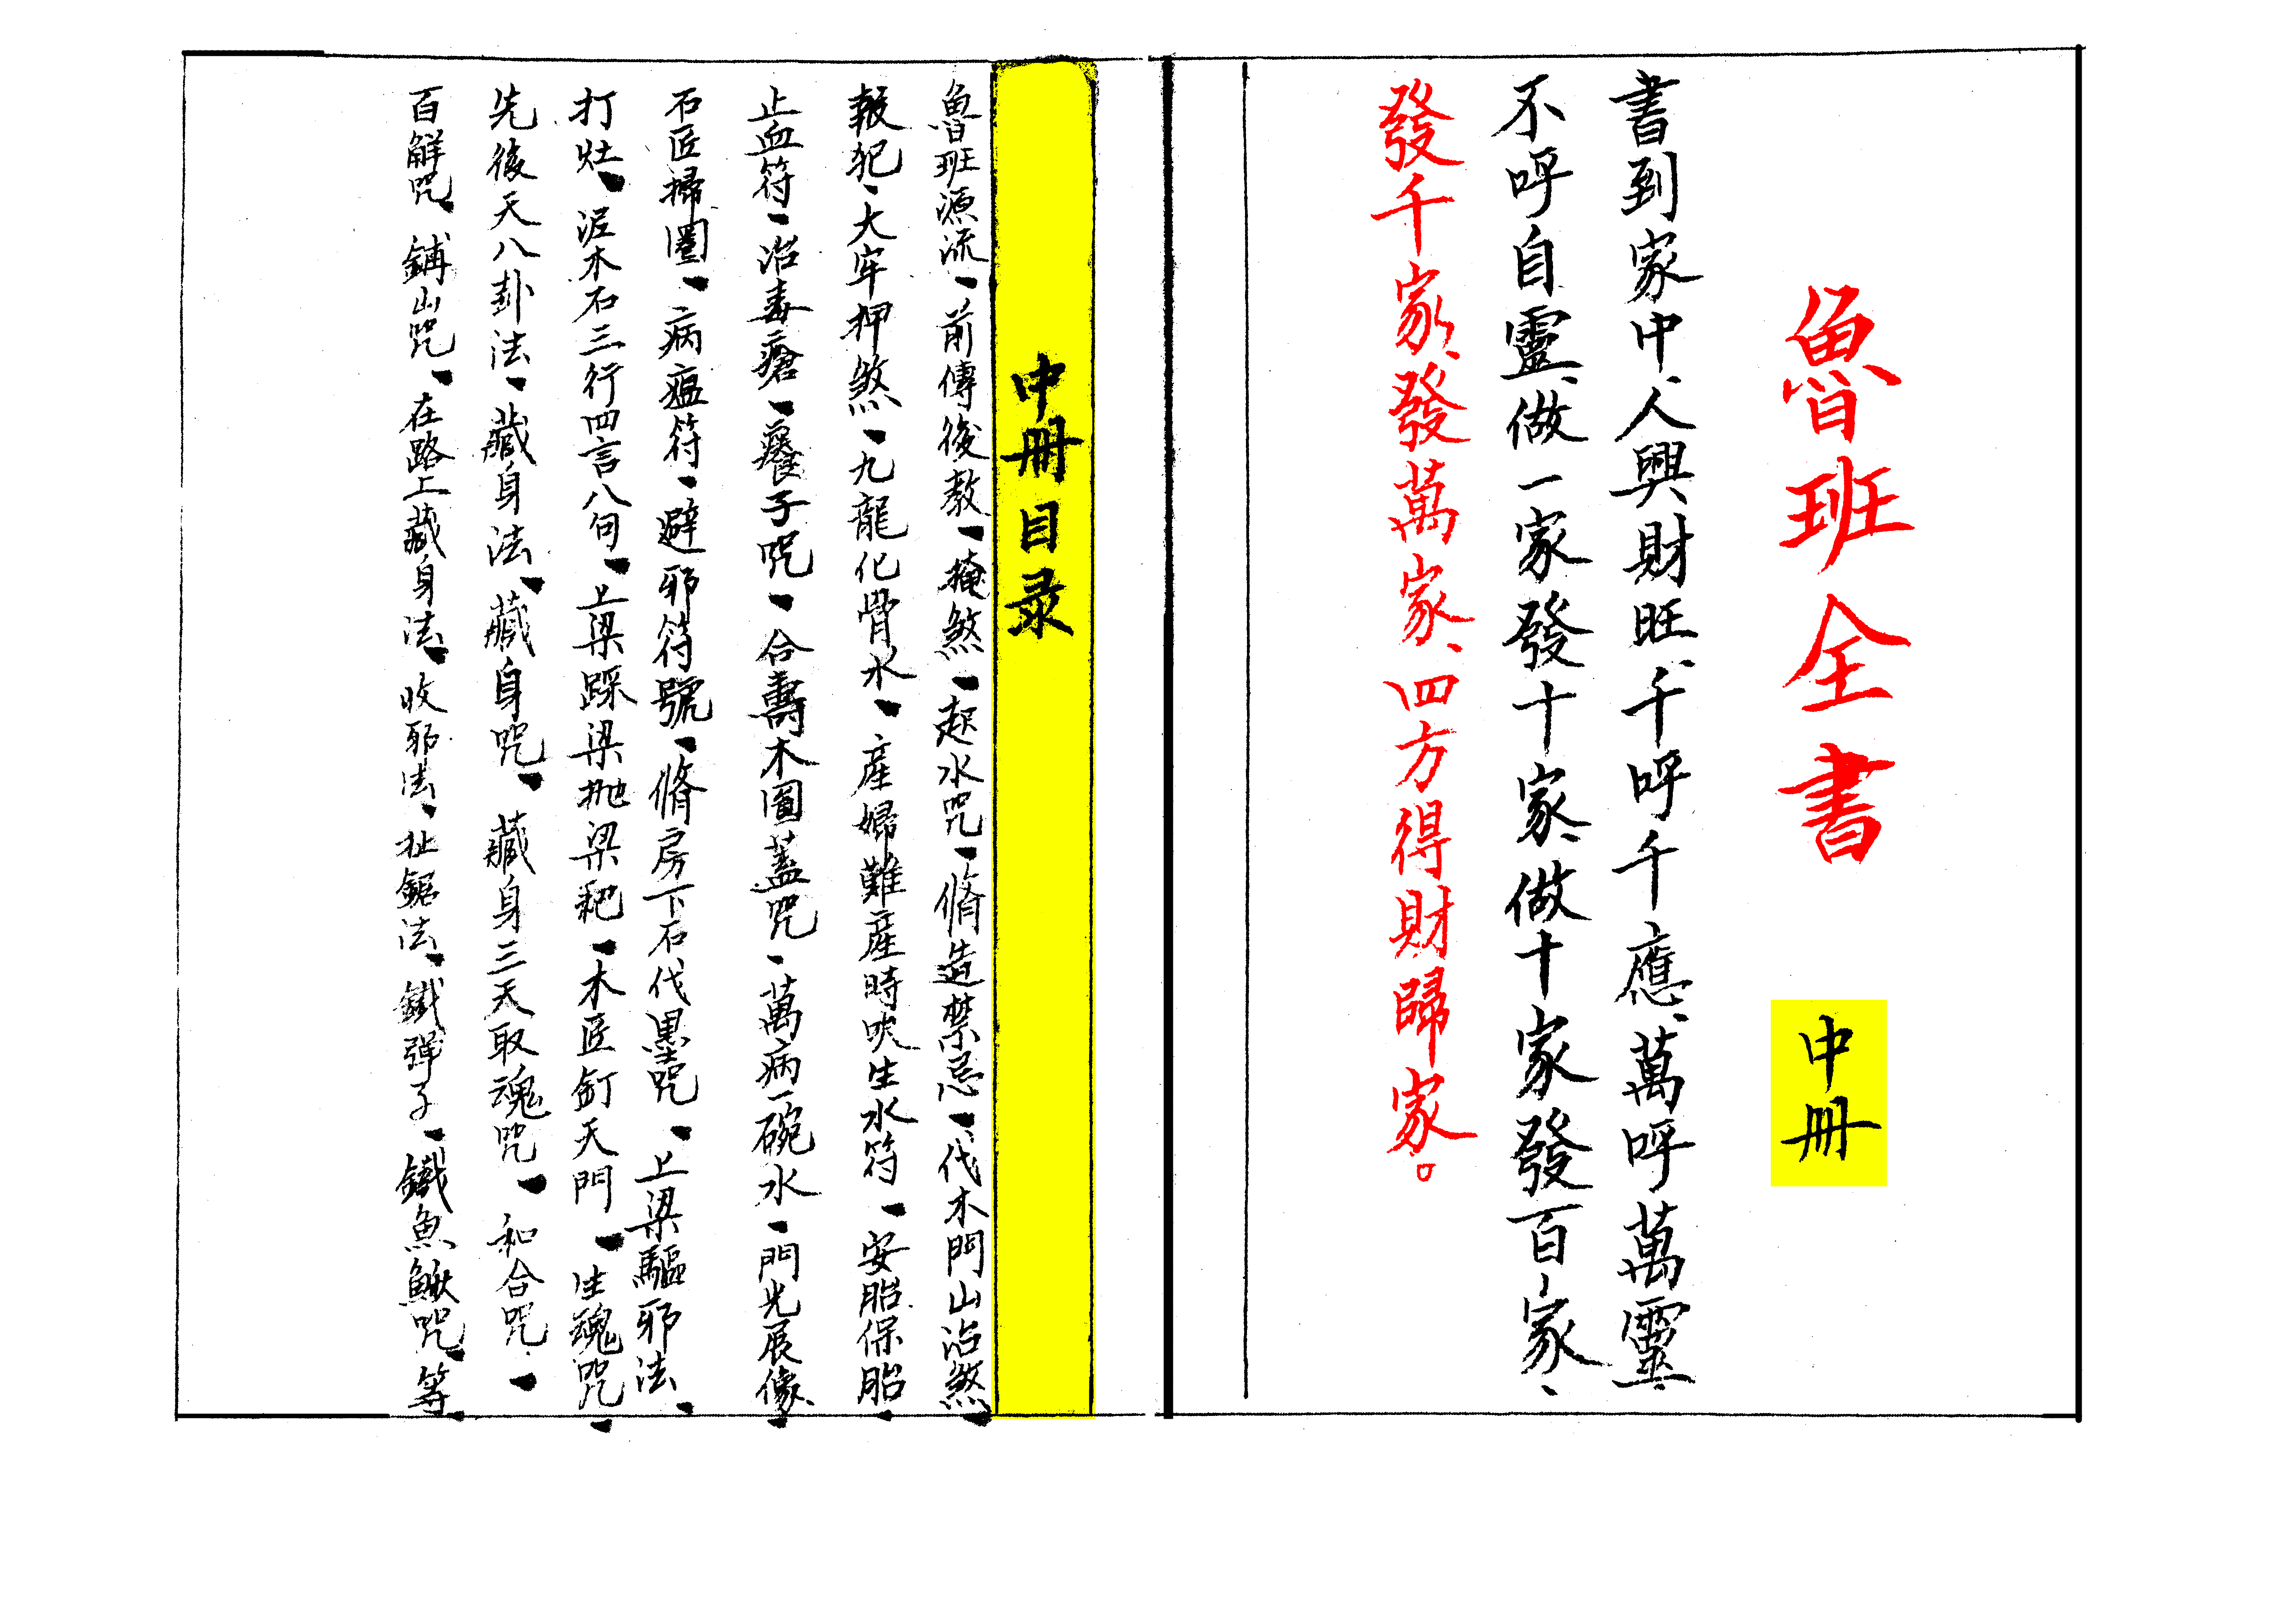 魯班全書 中冊
書到家中、人興財旺、千呼千應、萬呼萬靈、
不呼自靈、做一家發十家、做十家發百家、
發千家、發萬家、四方得財歸家。
中冊目录
魯班源流、前傳後教、掩煞、起水咒、脩造禁忌、伐木門山治煞、
報犯、大牢押煞、九龍化骨水、產婦難產時吹生水符、安胎保胎、
止血符、治毒瘡、癢子咒、合壽木圓蓋咒、萬病一碗水、門光展像、
石匠掃圈、病瘟符、避邪符號、脩房下石代墨咒、上梁驅邪法、
打灶、泥木石三行四言八句、上梁踩梁抛梁粑、木匠釘天門、生魂咒、
先後天八卦法、藏身法、藏身咒、藏身三天取魂咒、和合咒、
百解咒、鋪山咒、在路上藏身法、收邪法、扯鋸法、鐵彈子、鐵魚鰍咒、等、